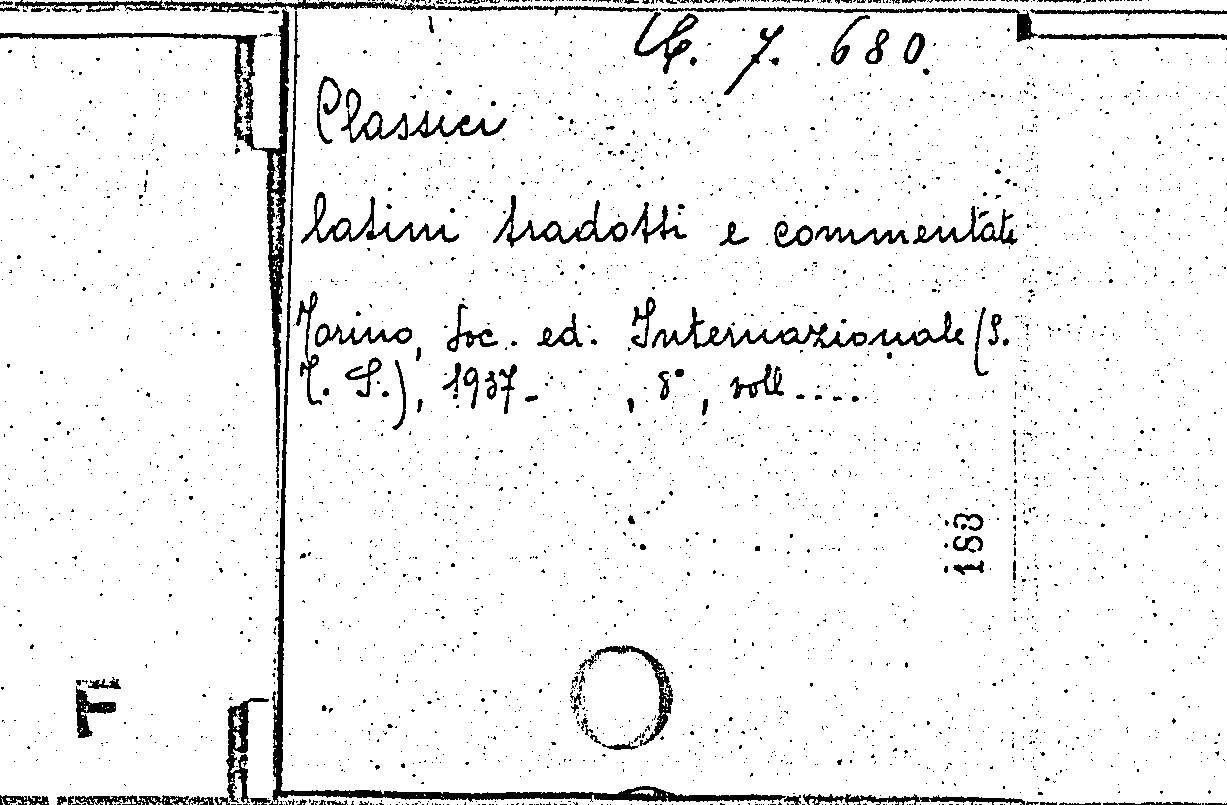 7. 680.
Classici
latini tradotti e commentati
Torino, Soc. ed. Internazionale (S.
T. S.), 1937- , 8°, voll....
188
F